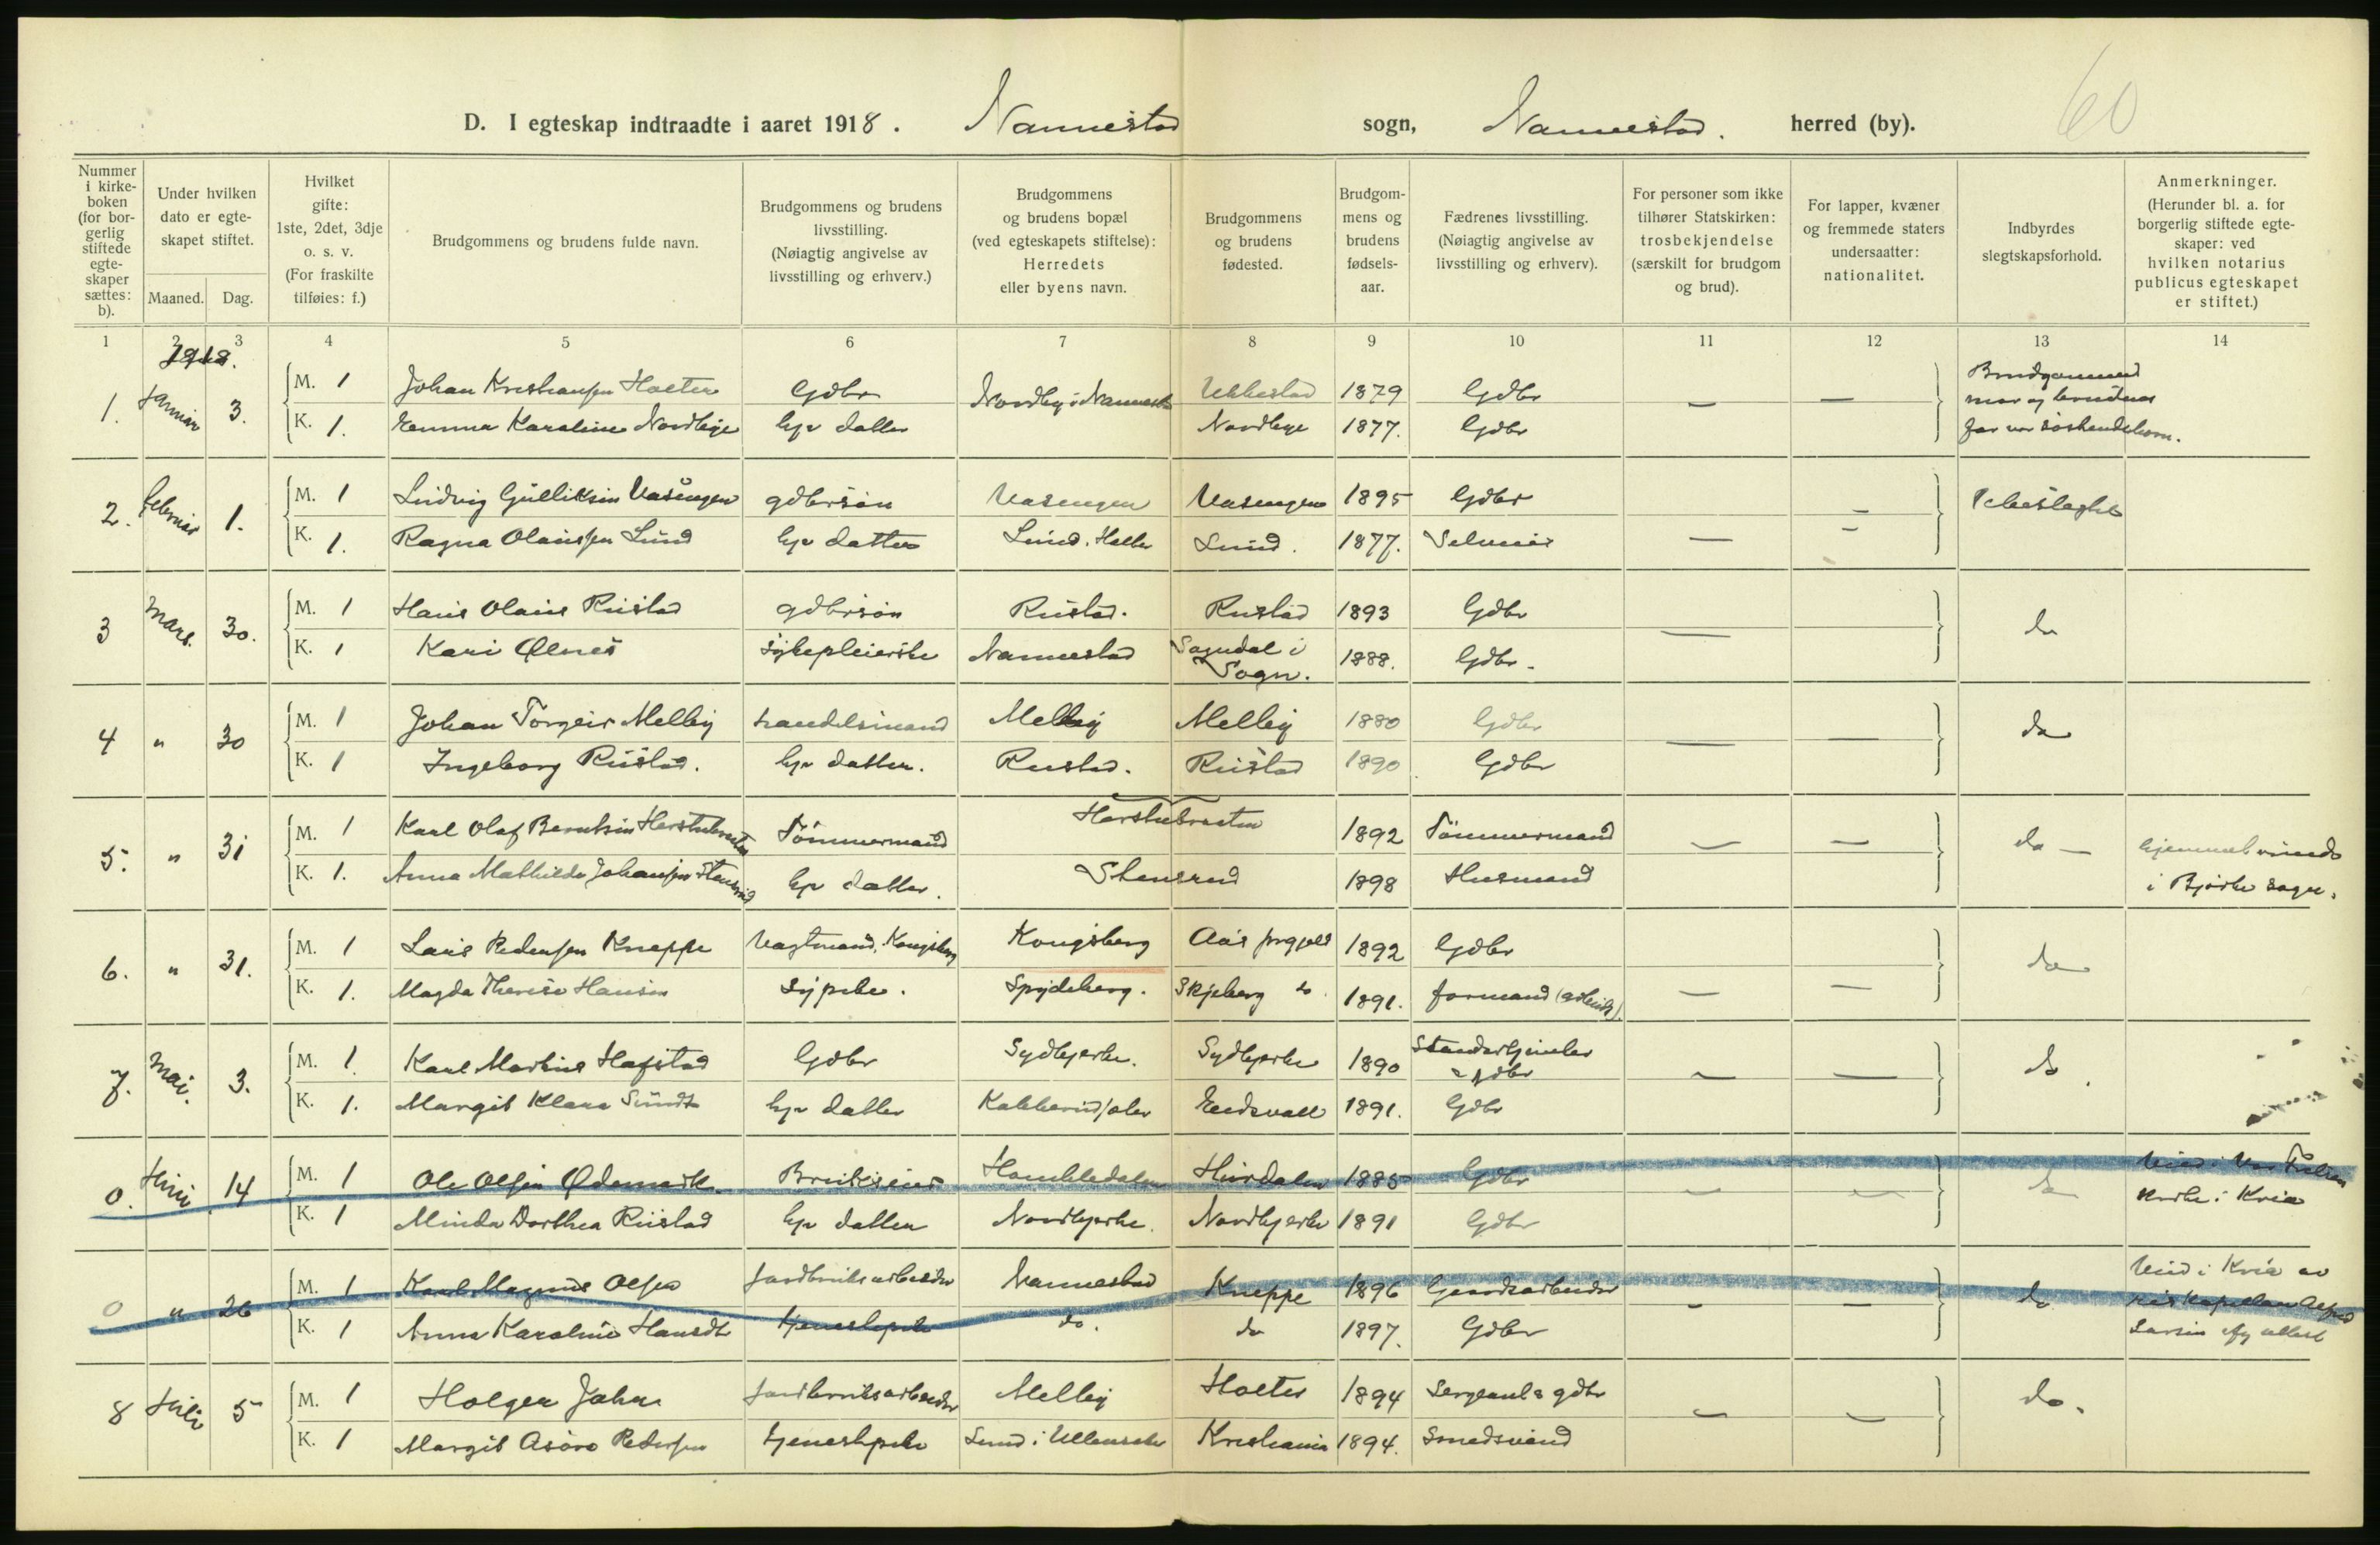 60
D. I egteskap indtraadte i aaret 1918. Nannestad sogn, Nannestad. herred (by).
Nummer i kirkeboken (for borgerlig stiftede egteskaper sættes: b).
Under hvilken dato er egteskapet stiftet.
Maaned. Dag.
Hvilket gifte: 1ste, 2det, 3dje o. s. v. (For fraskilte tilføies: f.)
Brudgommens og brudens fulde navn.
Brudgommens og brudens livsstilling. (Nøiagtig angivelse av livsstilling og erhverv.)
Brudgommens og brudens bopæl (ved egteskapets stiftelse): Herredets eller byens navn.
Brudgommens og brudens fødested.
Brudgommens og brudens fødselsaar.
Fædrenes livsstilling. (Nøiagtig angivelse av livsstilling og erhverv).
For personer som ikke tilhører Statskirken: trosbekjendelse (særskilt for brudgom og brud).
For lapper, kvæner og fremmede staters undersaatter: nationalitet.
Indbyrdes slegtskapsforhold.
Anmerkninger. (Herunder bl. a. for borgerlig stiftede egteskaper: ved hvilken notarius publicus egteskapet er stiftet.)
1 2 3 4 5 6 7 8 9 10 11 12 13 14
1918.
1. Januar 3. M. 1 Johan Kristiansen Holter Gdbr Nordby i Nannestad Ukkestad 1879 Gdbr — —
K. 1. Emma Karoline Nordbye hjv datter Nordbye 1877. Gdbr
Brudgommens
mor og brudens
far var søskendebarn.
2. Februar 1. M. 1 Ludvig Gulliksen Aasengen gdbrsøn Aasengen Aasengen 1895 Gdbr — Ubeslegtet
K. 1. Ragna Olaussen Lund hjv datter Lund. Holter Lund. 1877. — —
3 Mars. 30. M. 1 Hans Olaus Rustad gdbrsøn Rustad. Rustad 1893 Gdbr do
K. 1 Kari Ølnes Sykepleierske Nannestad Sogndal i Sogn. 1888. Gdbr. —
4 " 30 M. 1 Johan Torgeir Melby handelsmand Melby Melby 1880 Gdbr — — do
K. 1 Ingeborg Rustad. hjv datter. Rustad. Rustad 1890 Gdbr
5. " 31 M. 1 Karl Olaf Berntsen Herstubraaten Tömmermand Herstubraaten 1892 Tömmermand — — do —
K. 1. Anna Mathilde Johansen Stensrud hjv datter. Stensrud 1898 Husmand
hjemmehørende
i Bjørke sogn.
6. " 31. M. 1 Lars Pedersen Kneppe Vagtmand. Kongsberg Kongsberg Aas prgjeld 1892 Gdbr do
K. 1. Magda Therese Hansen Sypike. Spydeberg. Skjeberg do. 1891. formand (arbeids) — —
7. Mai. 3. M. 1. Karl Marius Hafstad Gdbr Sydbjerke. Sydbjerke 1890 gdbr — — do.
K. 1. Margit Klara Sundt hjv datter Eidsvold 1891. Gdbr
0. Juni 14 M. 1 Ole Olsen Ødemark Brukseier Hurdalen 1885 Gdbr — — do
K. 1 Minda Dorthea Rustad hjv datter Nordbjerke. Nordbjerke 1891 Gdbr
Viet i Vor Frelsers
kirke i Kr.ia
0 " 26 M. 1 Karl Magnus Olsen Jordbruksarbeider Nannestad Kneppe 1896 Gaardsarbeider — — do
K. 1 Anna Karoline Hansdtr tjenestepike do. do 1897. Gdbr
Viet i Kr.ia av
reskapellan Alfred
Larsen efg attest
8 Juli 5 M. 1 Holger Jahr Jordbruksarbeider Melby Holter 1894 Sergeant & gdbr — — do.
K. 1 Margit Asora Pedersen tjenestepike Lund i Ullensaker Kristiania 1894. Smedsvend